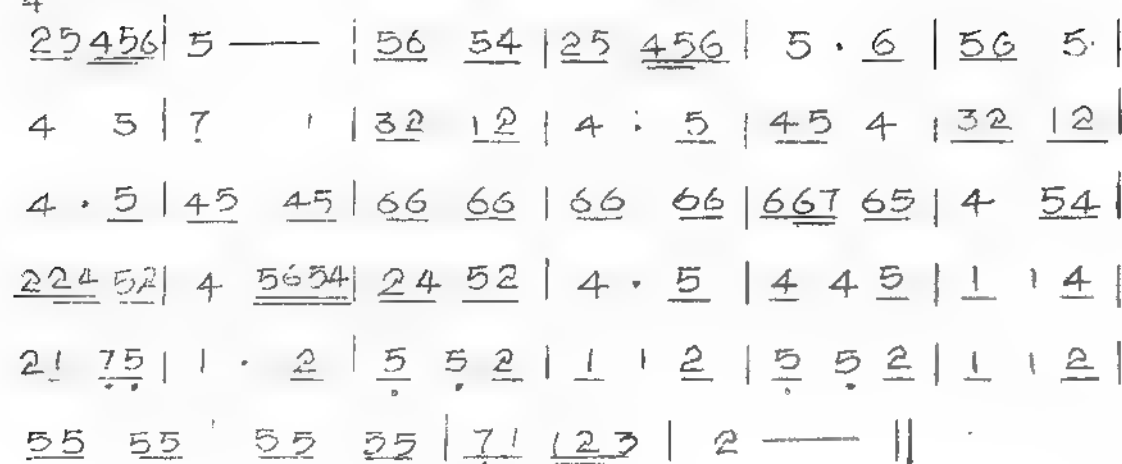 4
25 456 | 5 — | 56 54 | 25 456 | 5 · 6 | 56 5· |
4 5 | 7 1 | 32 12 | 4 · 5 | 45 4 | 32 12 |
4 · 5 | 45 45 | 66 66 | 66 66 | 667 65 | 4 54 |
224 52 | 4 5654 | 24 52 | 4 · 5 | 4 4 5 | 1 1 4 |
21 75 | 1 · 2 | 5 5 2 | 1 1 2 | 5 5 2 | 1 1 2 |
55 55 | 55 55 | 71 123 | 2 — ||